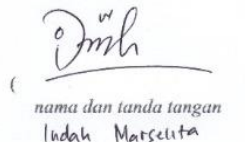 (
nama dan tanda tangan
Indah Marselita